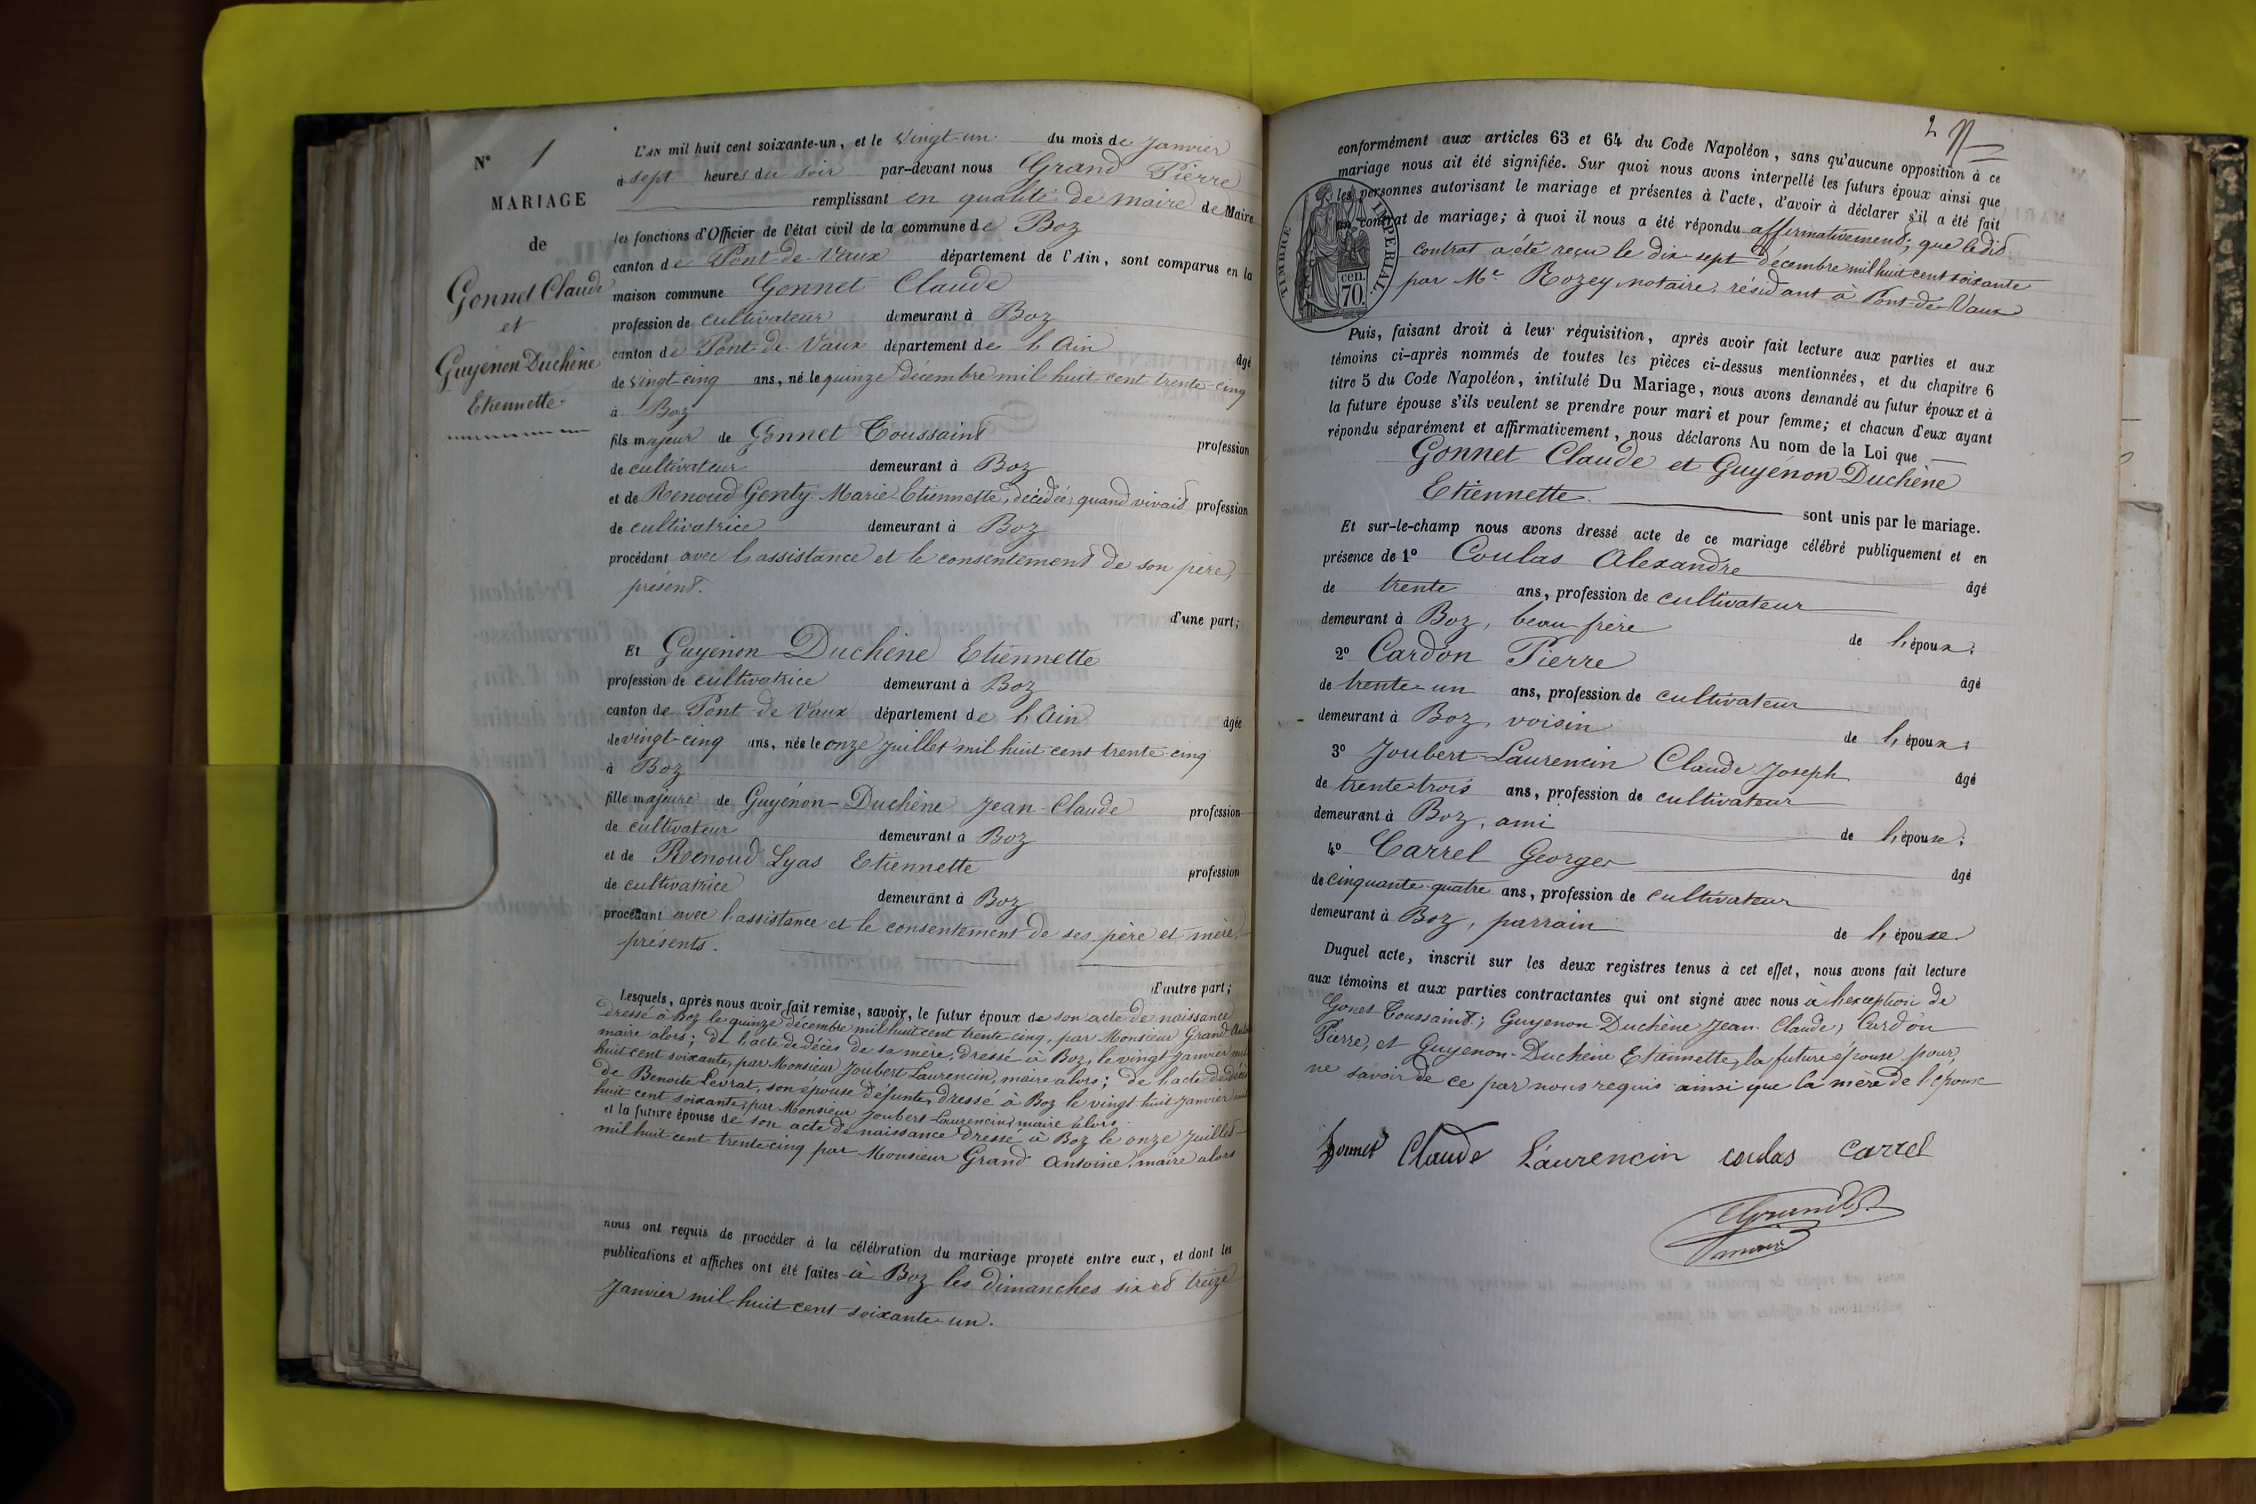 N° 1
MARIAGE
de
Gonnet Claude
et
Guyénon Duchêne
Etiennette
L'AN mil huit cent soixante-un, et le vingt-un du mois de Janvier
à sept heures du soir par-devant nous Grand Pierre
remplissant en qualité de maire de Maire
les fonctions d'Officier de l'état civil de la commune de Boz
canton de Pont-de-Vaux département de l'Ain, sont comparus en la
maison commune Gonnet Claude
profession de cultivateur demeurant à Boz
canton de Pont-de-Vaux département de l'Ain âgé
de vingt-cinq ans, né le quinze décembre mil huit cent trente-cinq
à Boz
fils majeur de Gonnet Toussaint profession
de cultivateur demeurant à Boz
et de Renoud Genty Marie-Etiennette, décédée, quand vivait profession
de cultivatrice demeurant à Boz
procédant avec l'assistance et le consentement de son père,
présent.
d'une part;
Et Guyénon Duchêne Etiennette
profession de cultivatrice demeurant à Boz
canton de Pont de Vaux département de l'Ain âgée
de vingt-cinq ans, née le onze Juillet mil huit cent trente-cinq
à Boz
fille majeure de Guyénon-Duchêne Jean-Claude profession
de cultivateur demeurant à Boz
et de Renoud Lyas Etiennette profession
de cultivatrice demeurant à Boz
procédant avec l'assistance et le consentement de ses père et mère,
présents.
d'autre part;
Lesquels, après nous avoir fait remise, savoir, le futur époux de son acte de naissance
dressé à Boz le quinze décembre mil huit cent trente-cinq, par Monsieur Grand
maire alors; de l'acte de décès de sa mère, dressé à Boz, le vingt Janvier mil
huit cent soixante, par Monsieur Joubert Laurencin, maire alors; de l'acte de décès
de Benoite Levrat, son épouse défunte, dressé à Boz le vingt-huit Janvier mil
huit cent soixante, par Monsieur Joubert Laurencin, maire alors
et la future épouse de son acte de naissance dressé à Boz le onze Juillet
mil huit cent trente-cinq par Monsieur Grand Antoine, maire alors
nous ont requis de procéder à la célébration du mariage projeté entre eux, et dont les
publications et affiches ont été faites à Boz les dimanches six et treize
Janvier mil huit cent soixante-un.
2
conformément aux articles 63 et 64 du Code Napoléon, sans qu'aucune opposition à ce
mariage nous ait été signifiée. Sur quoi nous avons interpellé les futurs époux ainsi que
les personnes autorisant le mariage et présentes à l'acte, d'avoir à déclarer s'il a été fait
un contrat de mariage; à quoi il nous a été répondu affirmativement; que ledit
contrat a été reçu le dix-sept décembre mil huit cent soixante
par Me Rozey, notaire, résidant à Pont-de-Vaux
TIMBRE IMPERIAL
cen.
70.
Puis, faisant droit à leur réquisition, après avoir fait lecture aux parties et aux
témoins ci-après nommés de toutes les pièces ci-dessus mentionnées, et du chapitre 6
titre 5 du Code Napoléon, intitulé Du Mariage, nous avons demandé au futur époux et à
la future épouse s'ils veulent se prendre pour mari et pour femme; et chacun d'eux ayant
répondu séparément et affirmativement, nous déclarons Au nom de la Loi que
Gonnet Claude et Guyénon-Duchêne
Etiennette. sont unis par le mariage.
Et sur-le-champ nous avons dressé acte de ce mariage célébré publiquement et en
présence de 1° Coulas Alexandre âgé
de trente ans, profession de cultivateur
demeurant à Boz, beau-frère de l'époux;
2° Cardon Pierre âgé
de trente-un ans, profession de cultivateur
demeurant à Boz, voisin de l'époux;
3° Joubert-Laurencin Claude Joseph âgé
de trente-trois ans, profession de cultivateur
demeurant à Boz, ami de l'épouse;
4° Carrel George âgé
de cinquante-quatre ans, profession de cultivateur
demeurant à Boz, parrain de l'épouse.
Duquel acte, inscrit sur les deux registres tenus à cet effet, nous avons fait lecture
aux témoins et aux parties contractantes qui ont signé avec nous à l'exception de
Gonet Toussaint; Guyenon Duchêne Jean-Claude, Cardon
Pierre, et Guyenon-Duchêne Etiennette, la future épouse pour
ne savoir de ce par nous requis ainsi que la mère de l'épouse
Gonnet Claude Laurencin coulas Carrel
Grand P.
maire